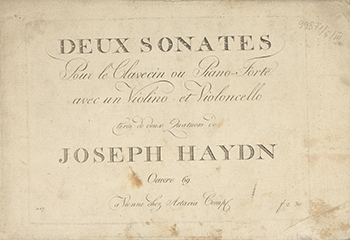 DEUX SONATES
Pour le Clavecin ou Piano-Forte
avec un Violino et Violoncello
tirés de deux Quatuors de
JOSEPH HAYDN
Oeuvre 69
a Vienne chez Artaria Comp.